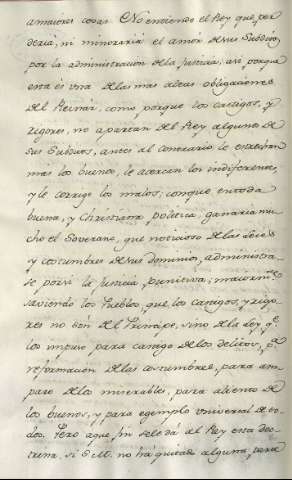 amaiores cosas. No entiendo el Rey que per
deria, ni minoraria el amor de sus Subditos
por la administracion de la Justicia, asi porque
esta es una de las mas altas obligaciones
del Reinar, como porque los castigos, y
rigores, no apartan del Rey algunos de
sus Subditos, antes al contrario le estrechan
mas los buenos, le acercan los indiferentes,
y le corrige los malos; conque en toda
buena, y Christiana politica, ganaria mu
cho el Soverano, que noticioso de las
y costumbres de sus dominios, administra
se por si la Justicia punitiva; maiormte
saviendo los Pueblos, que los castigos, y rigo
res no son del Principe, sino de la Ley qe
los impuso para castigo de los delitos, pa
reformacion de las costumbres, para am
paro de los miserables, para aliento de
los buenos, y para egemplo universal de to
dos. Pero aque fin se le dá al Rey esta doc
trina, si S.M. no ha quitado alguna para